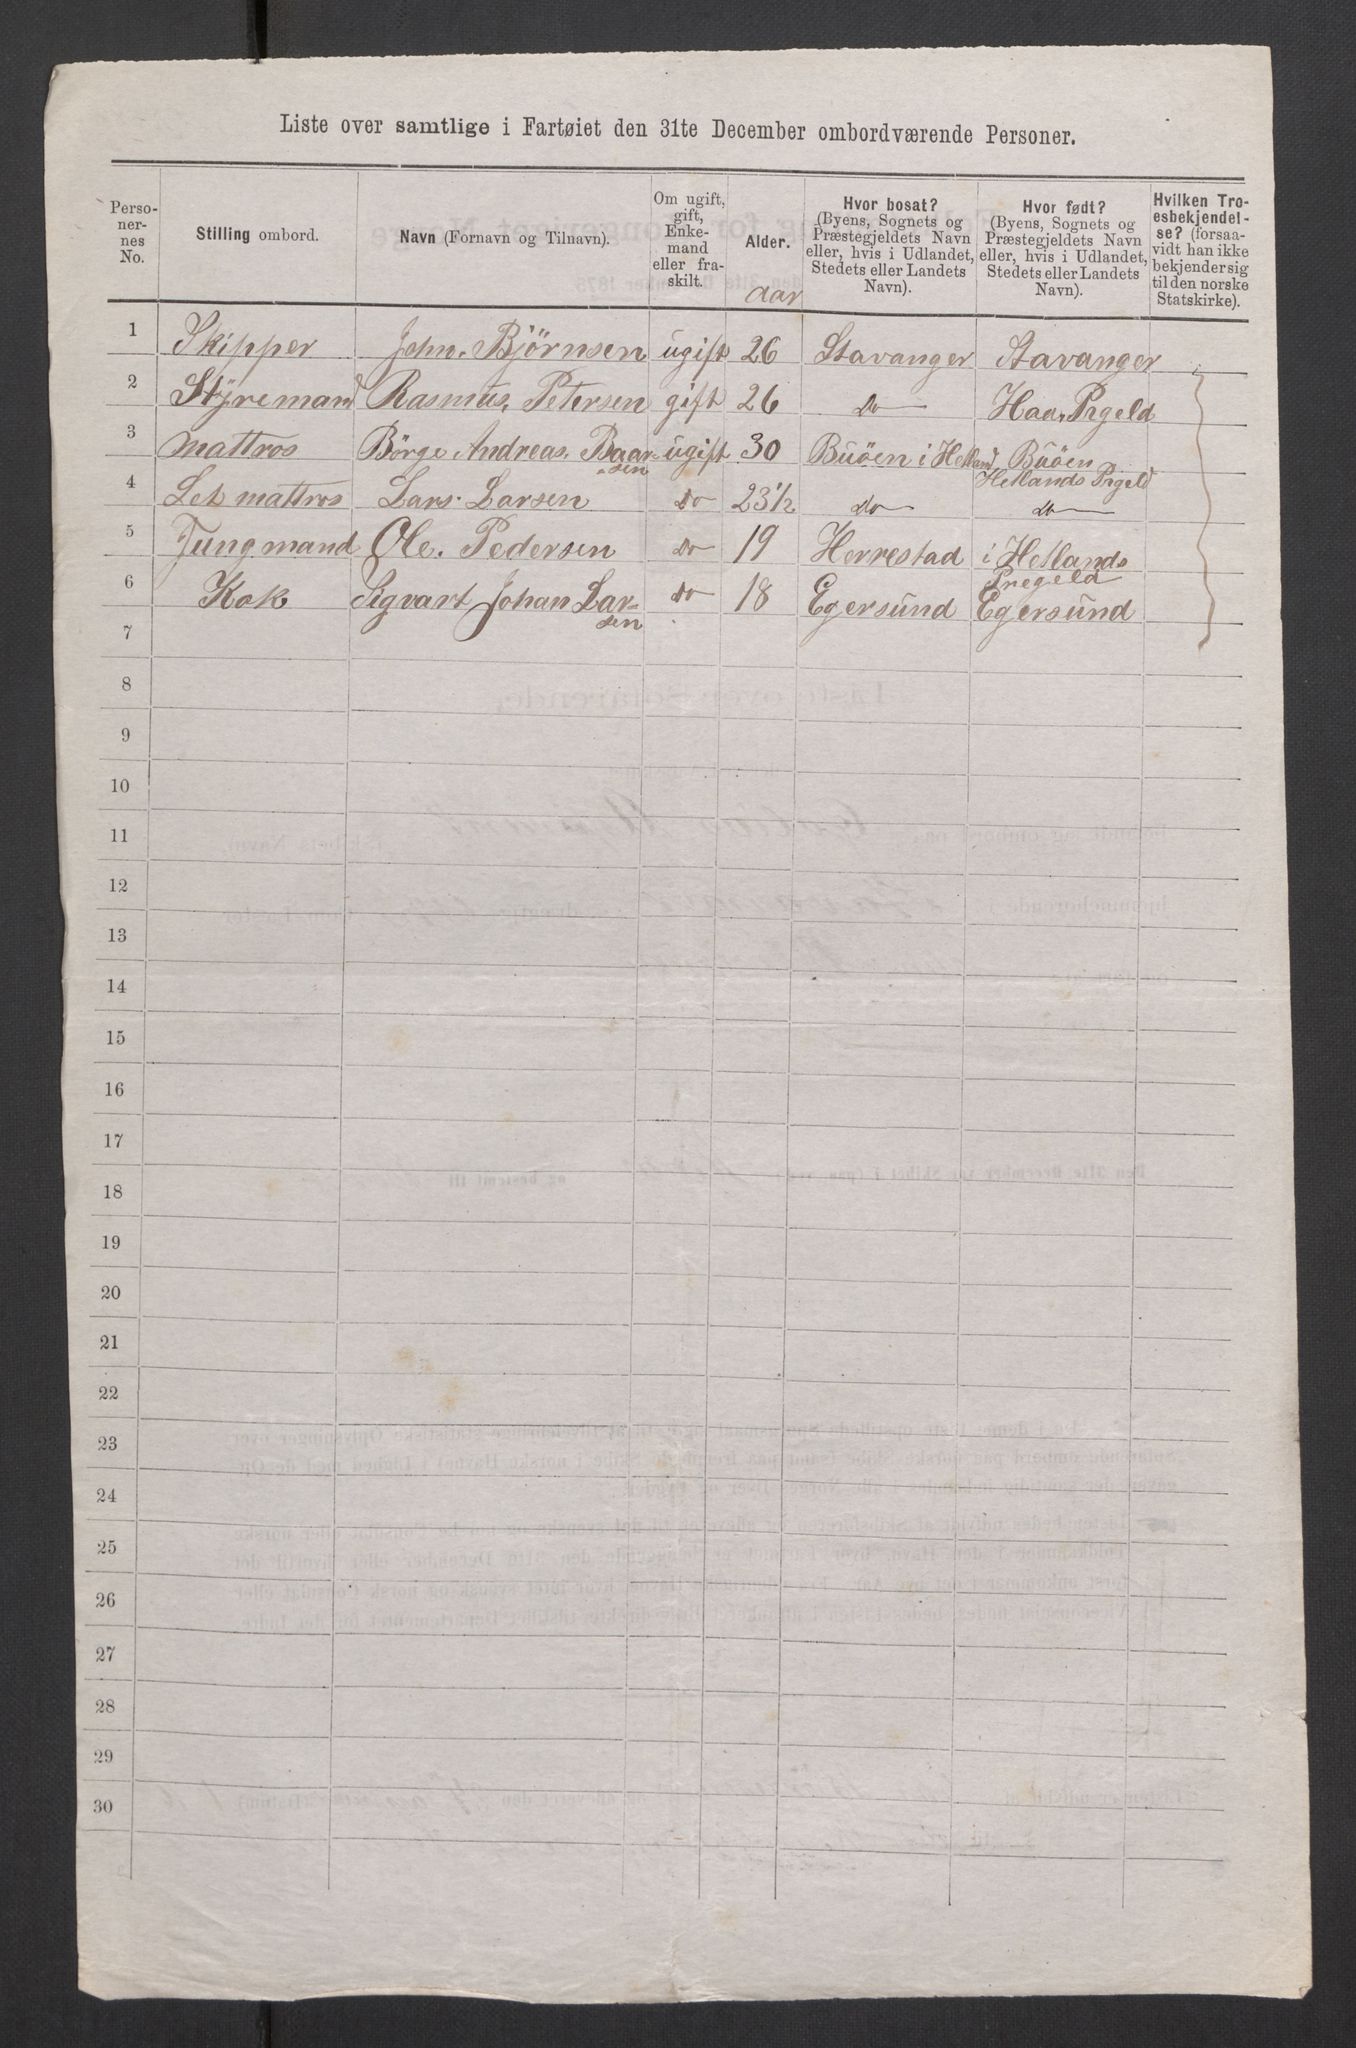 Liste over samtlige i Fartøiet den 31te December ombordværende Personer.
Perso-
ner-
nes
No.
Stilling ombord.
Navn (Fornavn og Tilnavn).
Om ugift,
gift,
Enke-
mand
eller fra-
skilt.
Alder.
aar
Hvor bosat?
(Byens, Sognets og
Præstegjeldets Navn
eller, hvis i Udlandet,
Stedets eller Landets
Navn).
Hvor født?
(Byens, Sognets og
Præstegjeldets Navn
eller, hvis i Udlandet,
Stedets eller Landets
Navn).
Hvilken Tro-
esbekjendel-
se? (forsaa-
vidt han ikke
bekjender sig
til den norske
Statskirke).
1 Skipper John. Björnsen ugift 26 Stavanger Stavanger
2 Styremand Rasmus. Petersen gift 26 Do Haa. Prgeld
3 Mattros Börge Andreas. Baar- ugift 30 Buöen i Hetland Buöen
sen Hetlands Prgeld
4 Let mattros Lars. Larsen Do 23 1/2 do do
5 Jungmand Ole. Pedersen Do 19 Herrestad i Hetlands
Pregeld
6 Kok Sigvart Johan Lar- Do 18 Egersund Egersund
sen
7
8
9
10
11
12
13
14
15
16
17
18
19
20
21
22
23
24
25
26
27
28
29
30